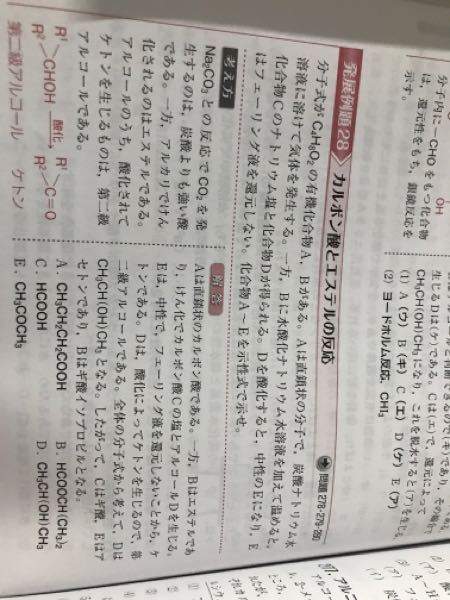 分子内に−CHOをもつ化合物
は，還元性をもち，銀鏡反応を
示す。
OH
生じるDは(ケ)である。Cは(エ)で，還元によって
CH₃CH(OH)CH₃になり，これを脱水すると(ア)を生じる。
(1) A (ウ) B (キ) C (エ) D (ケ) E (ア)
(2) ヨードホルム反応，CHI₃
発展例題28 カルボン酸とエステルの反応
問題 278・279・280
分子式がC₄H₈O₂の有機化合物A，Bがある。Aは直鎖状の分子で，炭酸ナトリウム水
溶液に溶けて気体を発生する。一方，Bに水酸化ナトリウム水溶液を加えて温めると，
化合物Cのナトリウム塩と化合物Dが得られる。Dを酸化すると，中性のEになり，E
はフェーリング液を還元しない。化合物A～Eを示性式で示せ。
考え方
Na₂CO₃との反応でCO₂を発
生するのは，炭酸よりも強い酸
である。一方，アルカリでけん
化されるのはエステルである。
アルコールのうち，酸化されて
ケトンを生じるものは，第二級
アルコールである。
R¹
R²
CHOH
酸化
R¹
R²
C=O
第二級アルコール ケトン
解答
Aは直鎖状のカルボン酸である。一方，Bはエステルであ
り，けん化でカルボン酸Cの塩とアルコールDを生じる。
Eは，中性で，フェーリング液を還元しないことから，ケ
トンである。Dは，酸化によってケトンを生じるので，第
二級アルコールである。全体の分子式から考えて，Dは
CH₃CH(OH)CH₃となる。したがって，Cはギ酸，Eはア
セトンであり，Bはギ酸イソプロピルとなる。
A．CH₃CH₂CH₂COOH B．HCOOCH(CH₃)₂
C．HCOOH D．CH₃CH(OH)CH₃
E．CH₃COCH₃